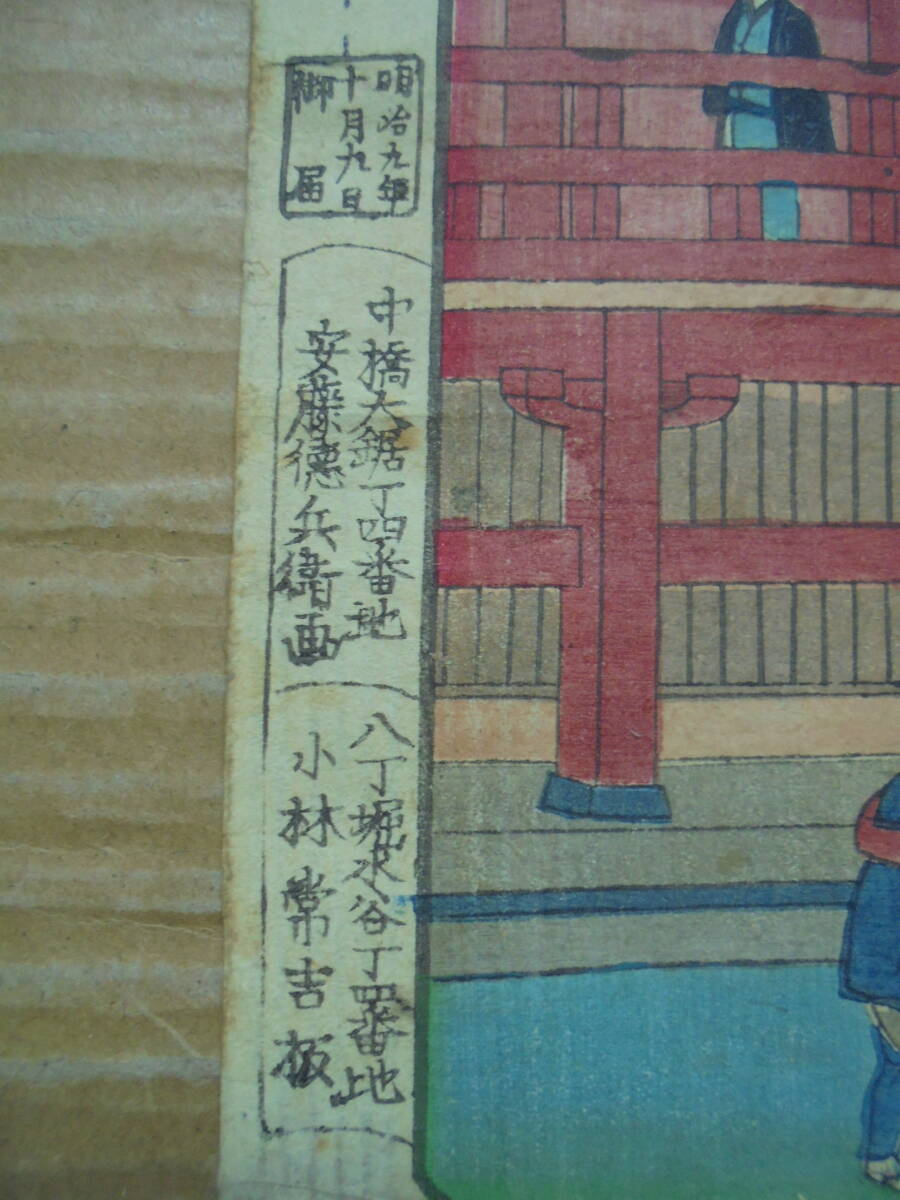 明治九年
十月九日
御届
中橋大鋸丁四番地
安藤德兵衛画
八丁堀水谷丁四番地
小林常吉板